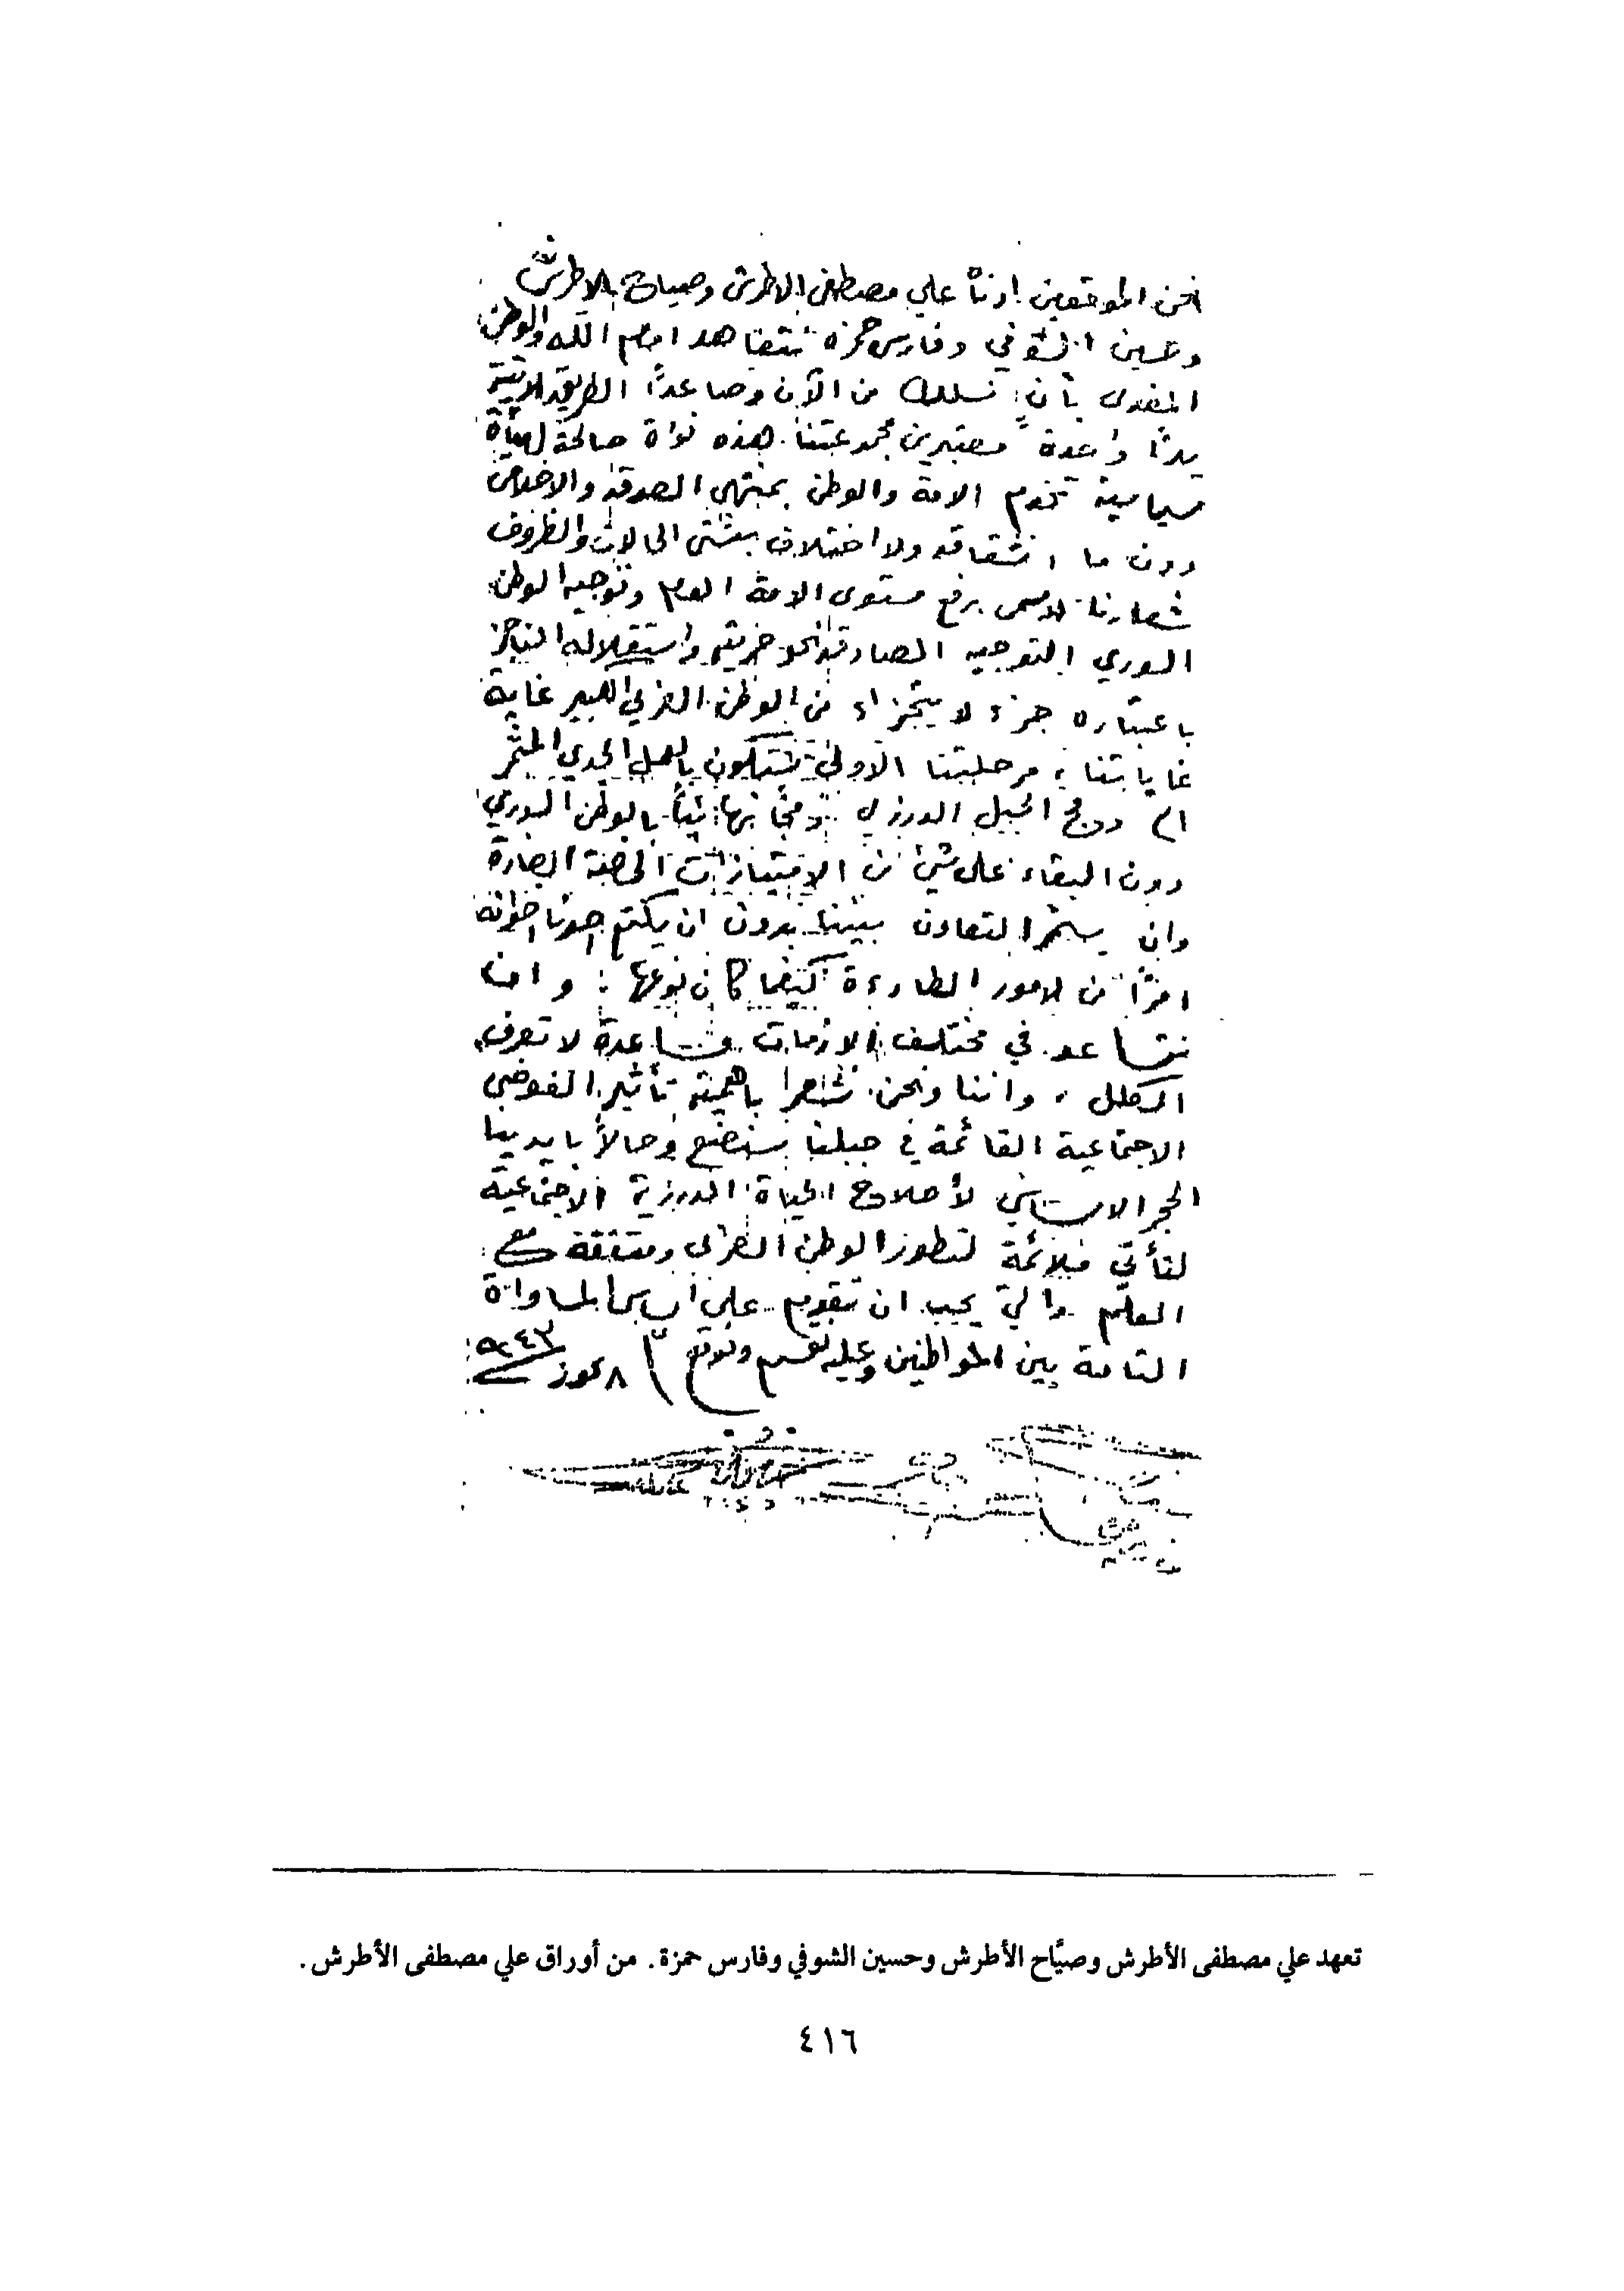 نحن الموقعين ادناه علي مصطفى الاطرش وصياح الاطرش
وحسين الشوفي وفارس حمزه نتعاهد امام الله والوطن
المفدى بأن نسلك من الآن وصاعداً الطريق الاتية
يداً واحدة معتبرين مجموعتنا هذه نواة صالحة لهيأة
سياسية تخدم الامة والوطن بمنتهى الصدق والاخلاص
دون ما انشقاق ولا اختلاف بشتى الحالات والظروف
شعارنا الاسمى رفع مستوى الامة العام وتوجيه الوطن
السوري التوجيه الصادق نحو حريته واستقلاله الناجز
باعتباره جزء لا يتجزاء من الوطن العربي الكبير غاية
غاياتنا، مرحلتنا الاولى ستكون بالعمل الجدي المثمر
دمج الجبل الدرزي دمجاً نهائياً بالوطن السوري
دون البقاء على شيئ من الامتيازات الضارة
وان يستمر التعاون بيننا بدون ان يكتم احدنا اخوانه
امراً من الامور الطارءة كيفما كان نوعها؛ وان
نتساعد في مختلف الازمات مساعدة لا تعرف
الكلل، واننا ونحن نشعر باهمية تأثير الفوضى
الاجتماعية القائمة في جبلنا سنضع وحالاً بايدينا
الحجر الاساسي لأصلاح الحياة الدرزية الاجتماعية
لتأتي ملائمة لتطور الوطن العربي ومتفقة مع
العلم والتي يجب ان تقوم على اساس المساواة
التامة بين المواطنين وعليه نقسم ونوقع ٨ تموز ٩٤٣
تعهد علي مصطفى الأطرش وصيَّاح الأطرش وحسين الشوفي وفارس حمزة. من أوراق علي مصطفى الأطرش.
٤١٦